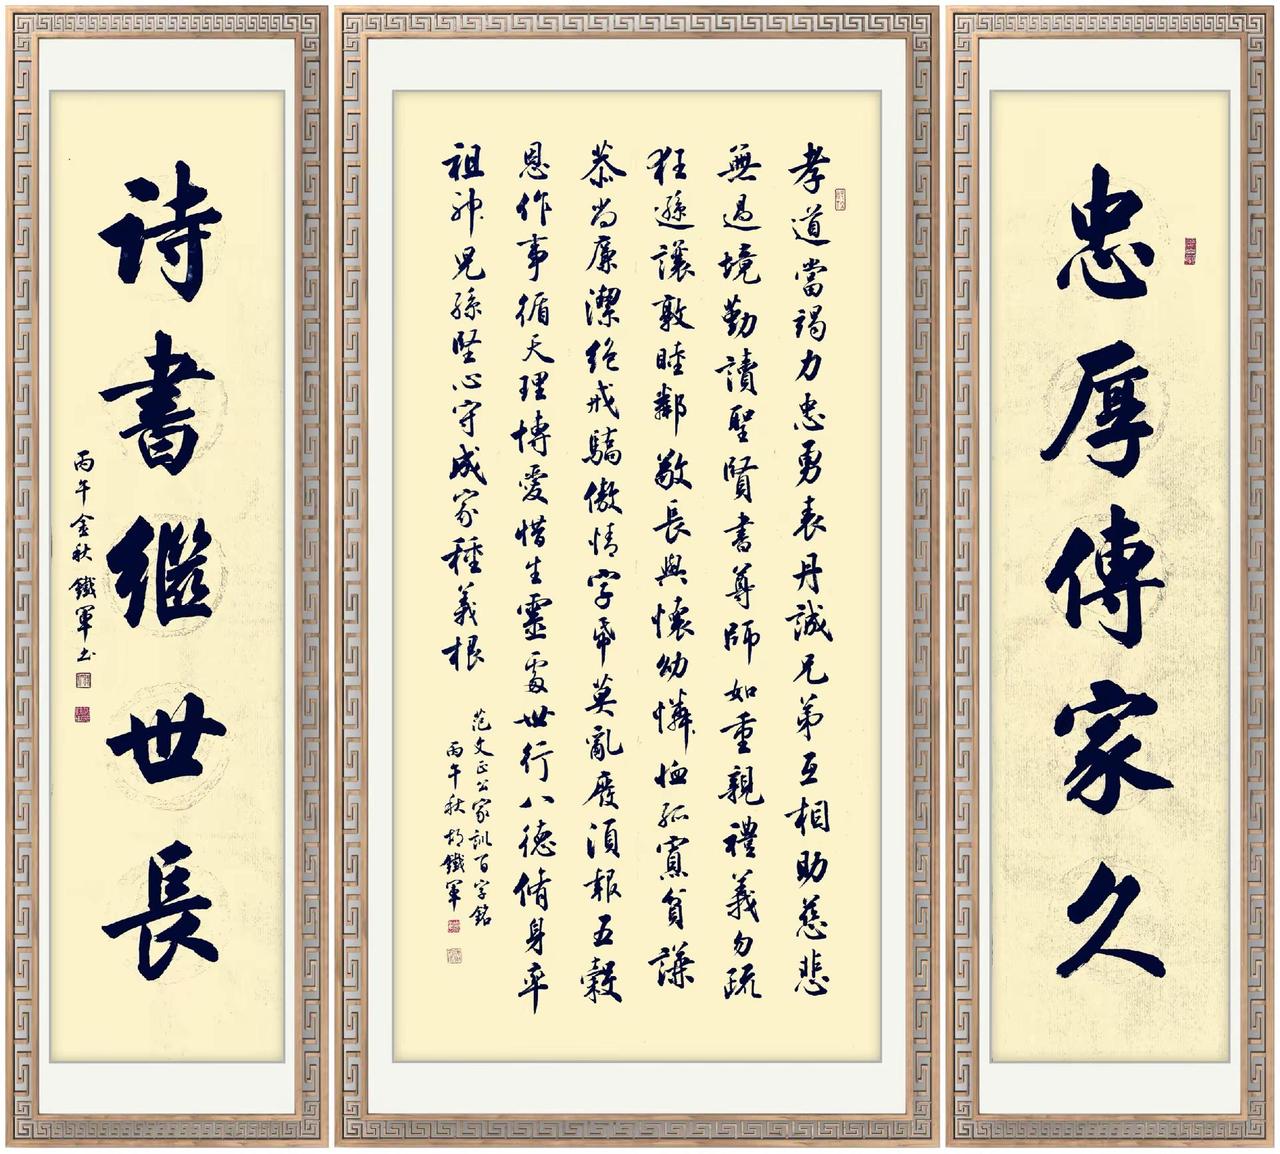 忠厚傳家久
孝道當竭力忠勇表丹誠兄弟互相助慈悲
無過境勤讀聖賢書尊師如重親禮義勿疏
狂遜讓敦睦鄰敬長與懷幼憐恤孤寡貧謙
恭尚廉潔絕戒驕傲情字帋莫亂廢須報五穀
恩作事循天理博愛惜生靈處世行八德脩身率
祖神兒孫堅心守成家種義根
范文正公家訓百字銘
丙午秋胡鐵軍
詩書繼世長
丙午金秋鐵軍书